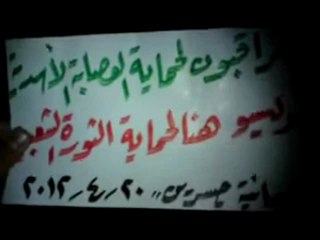 مراقبون لحماية العصابة الأسدية
وليسو هنا لحماية الثورة الشعبية
جسرين ،، ٢٠ / ٤ / ٢٠١٢